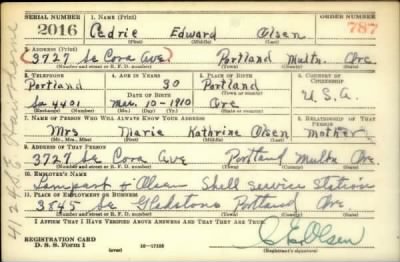 SERIAL NUMBER 1. NAME (Print) ORDER NUMBER
2016 Cedric Edward Olsen 787
(First) (Middle) (Last)
2. ADDRESS (Print)
3727 Se Cora Ave Portland Multn. Ore
(Number and street or R. F. D. number) (Town) (County) (State)
3. TELEPHONE 4. AGE IN YEARS 5. PLACE OF BIRTH 6. COUNTRY OF CITIZENSHIP
Portland 30 Portland
DATE OF BIRTH
4401 Mar. 10-1910 Ore U.S.A.
7. NAME OF PERSON WHO WILL ALWAYS KNOW YOUR ADDRESS 8. RELATIONSHIP OF THAT PERSON
Mrs Marie Kathrine Olsen Mother
(Mr., Mrs., Miss) (First) (Middle) (Last)
9. ADDRESS OF THAT PERSON
3727 Se Cora Ave Portland Multn Ore
(Number and street or R. F. D. number) (Town) (County) (State)
10. EMPLOYER'S NAME
Lampert & Olsen Shell Service Station
11. PLACE OF EMPLOYMENT OR BUSINESS
3845 Se Gladstone Portland Ore
(Number and street or R. F. D. number) (Town) (County) (State)
I AFFIRM THAT I HAVE VERIFIED ABOVE ANSWERS AND THAT THEY ARE TRUE.
REGISTRATION CARD
D. S. S. Form 1 (over) 16-17105 C E Olsen
(Registrant's signature)